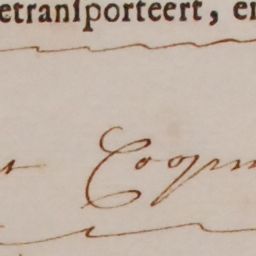 etransporteert, en
Coopm